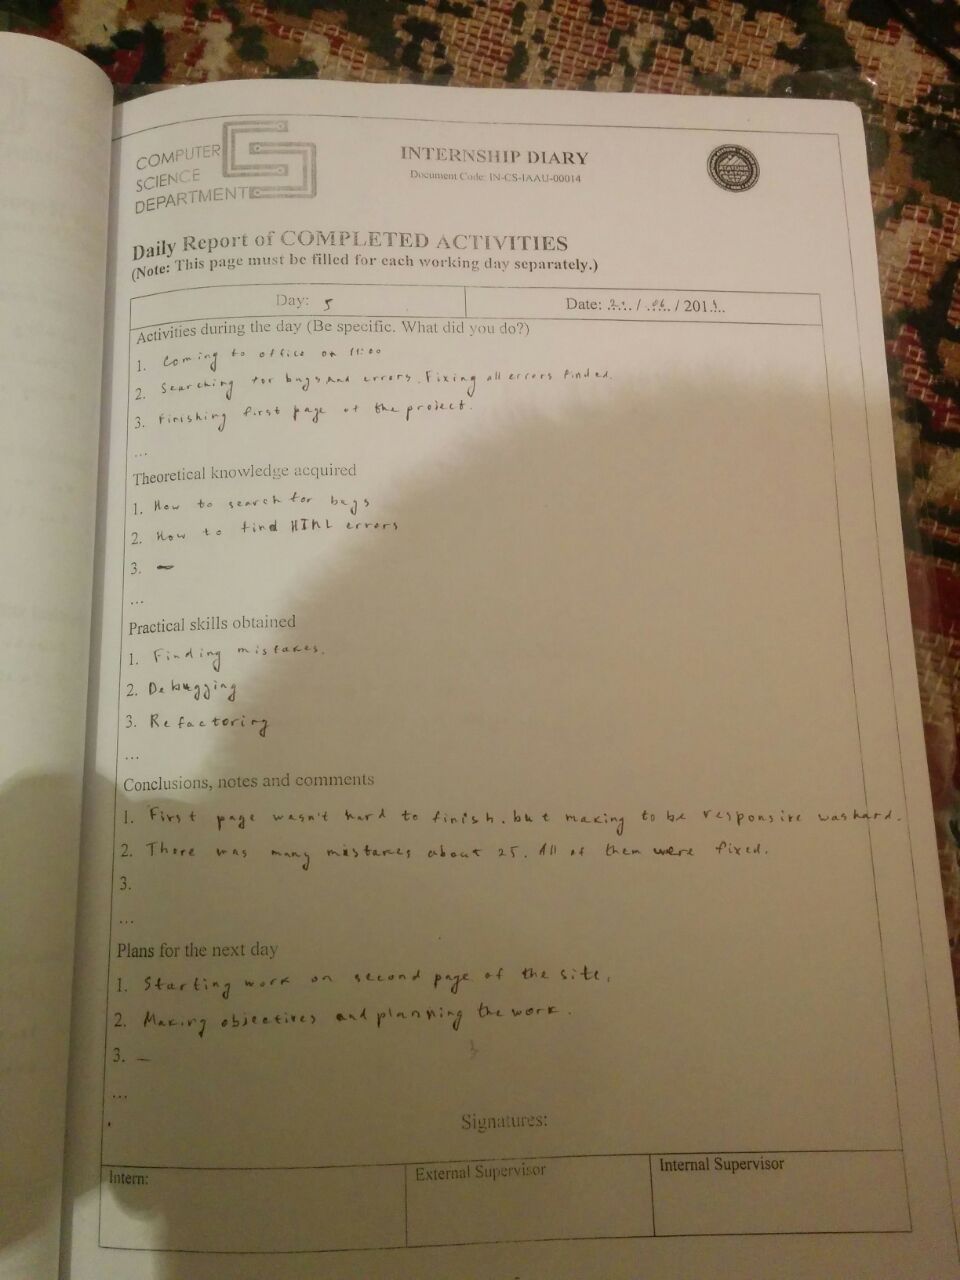 COMPUTER
SCIENCE
DEPARTMENT
INTERNSHIP DIARY
Document Code: IN-CS-IAAU-00014
Daily Report of COMPLETED ACTIVITIES
(Note: This page must be filled for each working day separately.)
Day: 5
Date: / 06 / 201
Activities during the day (Be specific. What did you do?)
1. Coming to office on 11:00
2. Searching for bugs and errors. Fixing all errors finded.
3. Finishing first page of the project.
...
Theoretical knowledge acquired
1. How to search for bugs
2. How to find HTML errors
3. -
...
Practical skills obtained
1. Finding mistakes.
2. Debugging
3. Refactoring
...
Conclusions, notes and comments
1. First page wasn't hard to finish. but making to be responsive was hard.
2. There was many mistakes about 25. All of them were fixed.
3.
...
Plans for the next day
1. Starting work on second page of the site.
2. Making objectives and planning the work.
3. -
...
Signatures:
Intern:
External Supervisor
Internal Supervisor